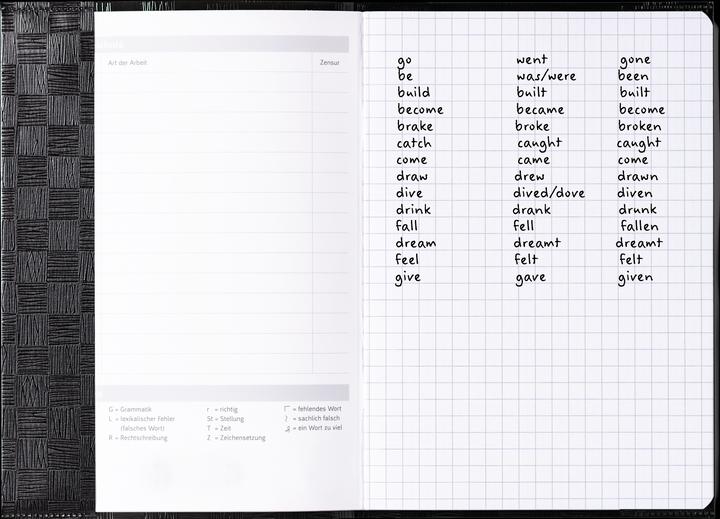 Art der Arbeit Zensur
G = Grammatik
L = lexikalischer Fehler
(falsches Wort)
R = Rechtschreibung
r = richtig
St = Stellung
T = Zeit
Z = Zeichensetzung
Γ = fehlendes Wort
= sachlich falsch
= ein Wort zu viel
go went gone
be was/were been
build built built
become became become
brake broke broken
catch caught caught
come came come
draw drew drawn
dive dived/dove diven
drink drank drunk
fall fell fallen
dream dreamt dreamt
feel felt felt
give gave given